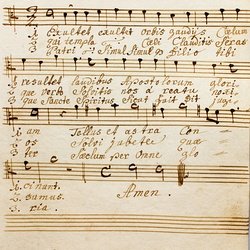 1. Exultet, exultet orbis gaudijs Cœlum
2. qui templa Cœli Clauditis Seras
3. Patri Simul Simulq Filio tibi
1. resultet laudibus Apostolorum glori
2. que verbo Solvitis nos a reatu noxi
3. que Sancte Spiritus Sicut fuit Sit jugi
1. am Tellus et astra Con
2. os Solvi jubete quæ
3. ter Sæclum per Omne glo
1. cinunt.
2. sumus. Amen.
3. ria.